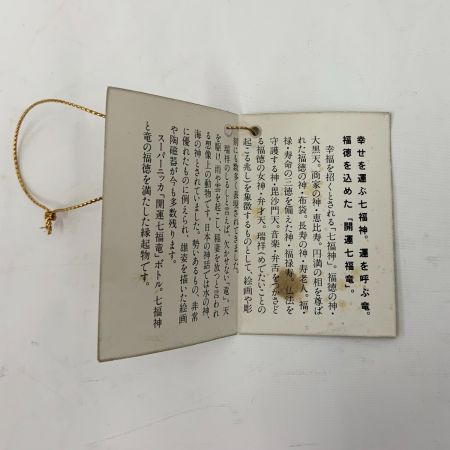 幸せを運ぶ七福神。運を呼ぶ竜。
福徳を込めた「開運七福竜」。
幸福を招くとされる「七福神」。福徳の神・
大黒天。商家の神・恵比寿。円満の相を尊ば
れた福徳の神・布袋。長寿の神・寿老人。福・
禄・寿命の三徳を備えた神・福禄寿。仏法を
守護する神・毘沙門天。音楽・弁舌をつかさど
る福徳の女神・弁才天。瑞祥（めでたいことの
起こる兆し）を象徴するものとして、絵画や彫
刻にも数多く表現されてきました。
瑞祥のしるしと言えば、欠かせない「竜」。天
を駆け、雨や雲を起こし、稲妻を放つと言われ
る想像上の動物です。日本の神話では水の神、
海の神とされていました。勢いあるもの、非常
に優れたものに例えられ、雄姿を描いた絵画
や陶磁器が今も多数残ります。
スーパーニッカ「開運七福竜」ボトル。七福神
と竜の福徳を満たした縁起物です。